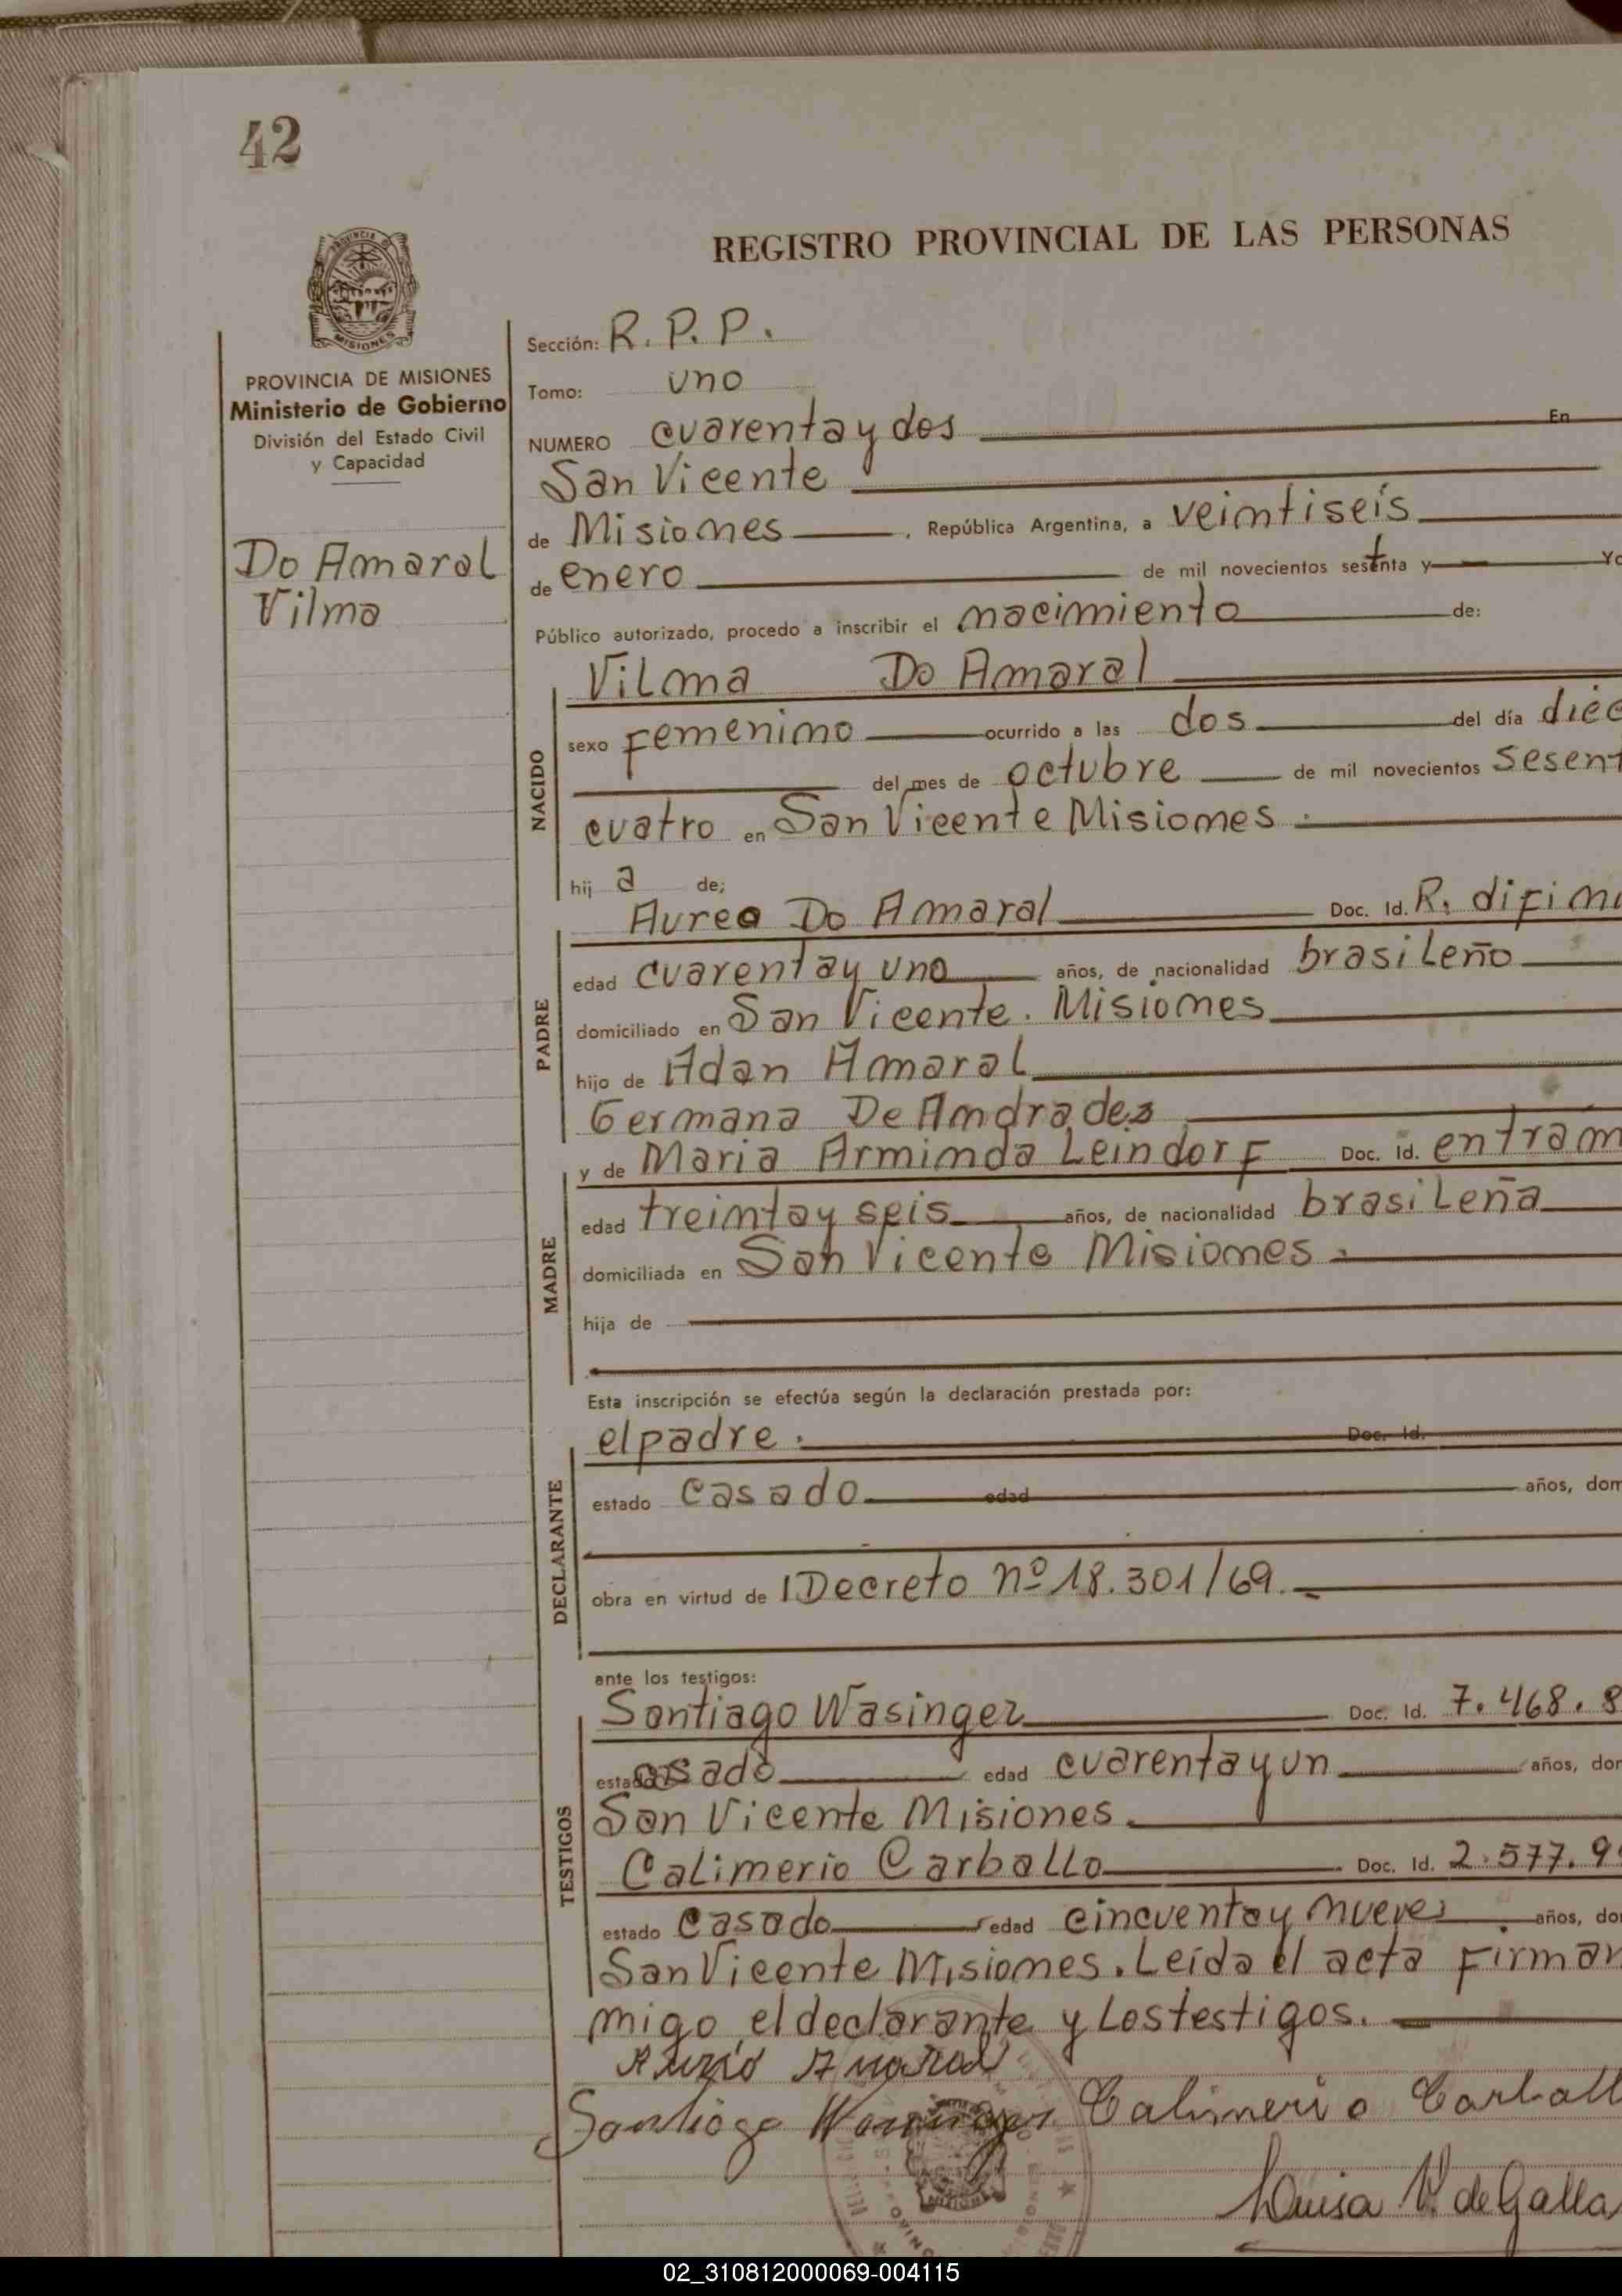 42
REGISTRO PROVINCIAL DE LAS PERSONAS
PROVINCIA
MISIONES
PROVINCIA DE MISIONES
Ministerio de Gobierno
División del Estado Civil
y Capacidad
Do Amaral
Vilma
Sección: R. P. P.
Tomo: uno
NUMERO cuarenta y dos En
San Vicente
de Misiones , República Argentina, a veintiseis
de enero de mil novecientos setenta y Yo
Público autorizado, procedo a inscribir el nacimiento de:
Vilma Do Amaral
NACIDO
sexo femenino ocurrido a las dos del día diec
del mes de octubre de mil novecientos sesent
cuatro en San Vicente Misiones.
hij a de;
PADRE
Aureo Do Amaral Doc. Id. R. difini
edad cuarenta y uno años, de nacionalidad brasileño
domiciliado en San Vicente. Misiones
hijo de Adan Amaral
Germana De Andrades
MADRE
y de Maria Arminda Leindorf Doc. id. entram
edad treinta y seis años, de nacionalidad brasileña
domiciliada en San Vicente Misiones
hija de
Esta inscripción se efectúa según la declaración prestada por:
DECLARANTE
el padre. Doc. Id.
estado casado edad años, dom
obra en virtud de Decreto nº 18.301/69.
ante los testigos:
TESTIGOS
Santiago Wasinger Doc. Id. 7.468.8
estado casado edad cuarenta y un años, dor
San Vicente Misiones.
Calimerio Carballo Doc. Id. 2.577.9
estado casado edad cincuenta y nueve años, do
San Vicente Misiones. Leída el acta firman
migo el declarante y los testigos.
Amaral
Santiago Wasinger Calimerio Carball
Luisa V. de Galla
02_310812000069-004115